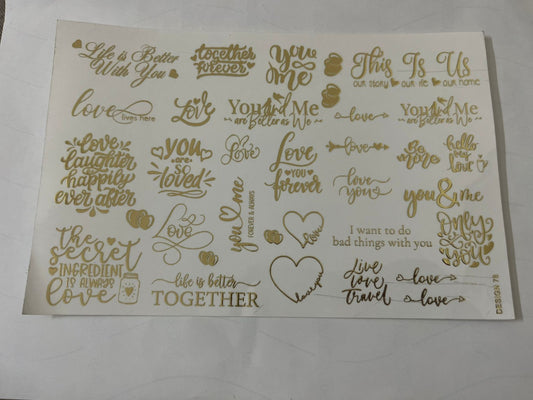 Life is Better
With You
together
forever
You
Me
This Is Us
our story our life our home
love
lives here
Love
You & Me
are Better as We
love
You & Me
are Better as We
love
laughter
happily
ever after
you
are
so
loved
Love
Love
you
forever
love
be
more
hello
my
love
love
you
you & me
you & me
FOREVER & ALWAYS
Love
love
I want to do
bad things with you
Only
You
the
secret
INGREDIENT
IS ALWAYS
love
life is better
TOGETHER
love you
Live
love
travel
love
love
DESIGN 78